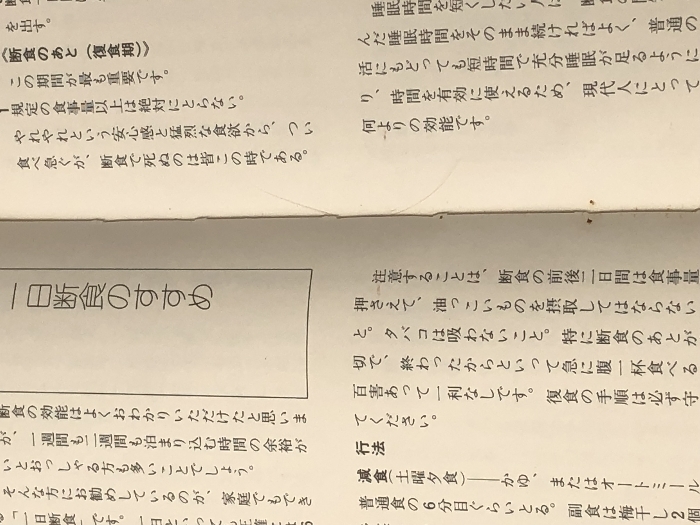 を出す。
《断食のあと（復食期）》
この期間が最も重要です。
1 規定の食事量以上は絶対にとらない。
やれやれという安心感と猛烈な食欲から、つい
食べ急ぐが、断食で死ぬのは皆この時である。
睡眠時間を短くしたい
んだ睡眠時間をそのまま続ければよく、普通の
活にもどっても短時間で充分睡眠が足るように
り、時間を有効に使えるため、現代人にとって
何よりの効能です。
一日断食のすすめ
断食の効能はよくおわかりいただけたと思いま
が、一週間も二週間も泊まり込む時間の余裕が
いとおっしゃる方も多いことでしょう。
そんな方にお勧めしているのが、家庭でもでき
「一日断食」です。一日といっても
注意することは、断食の前後二日間は食事量
押さえて、油っこいものを摂取してはならない
と。タバコは吸わないこと。特に断食のあとが
切で、終わったからといって急に腹一杯食べる
百害あって一利なしです。復食の手順は必ず守
てください。
行法
減食（土曜夕食）——かゆ、またはオートミール
普通食の6分目ぐらいとる。副食は梅干し2個